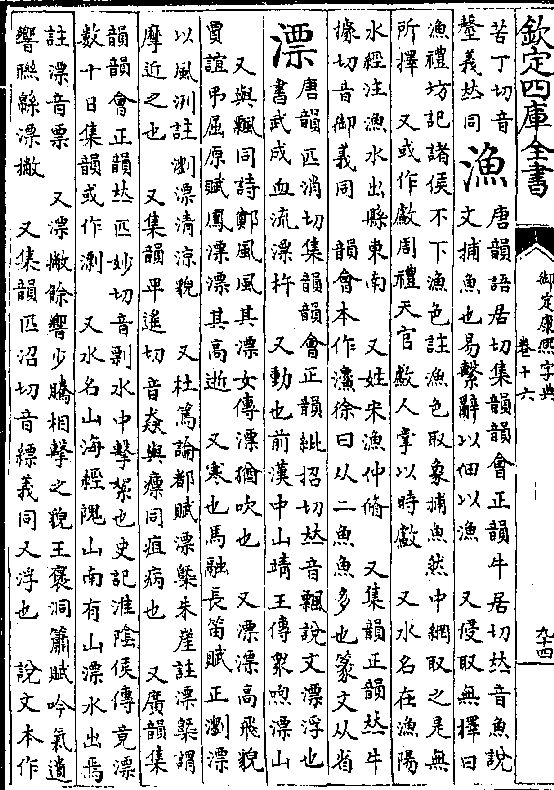 欽定四庫全書
御定康熙字典
卷十六
苦丁切音
漦義𠀤同
漁
唐韻語居切集韻韻會正韻牛居切𠀤音魚說
文捕魚也易繫辭以佃以漁　又侵取無擇曰
漁禮坊記諸侯不下漁色註漁色取象捕魚然中網取之是無
所擇　又或作𣀷周禮天官𣀷人掌以時𣀷　又水名在漁陽
水經注漁水出縣東南　又姓宋漁仲脩　又集韻正韻𠀤牛
據切音御義同　韻會本作𤅬徐曰从二魚魚多也篆文从省
漂
唐韻匹消切集韻韻會正韻紕招切𠀤音飄說文漂浮也
書武成血流漂杵　又動也前漢中山靖王傳衆喣漂山
又與飄同詩鄭風風其漂女傳漂猶吹也　又漂漂高飛貌
賈誼弔屈原賦鳳漂漂其高逝　又寒也馬融長笛賦正瀏漂
以風洌註瀏漂清涼貌　又杜篤論都賦漂槩朱崖註漂槩謂
摩近之也　又集韻卑遙切音猋與瘭同疽病也　又廣韻集
韻韻會正韻𠀤匹妙切音剽水中擊絮也史記淮陰侯傳竟漂
數十日集韻或作㵱　又水名山海經隗山南有山漂水出焉
註漂音票　又漂撇餘響少騰相擊之貌王褒洞簫賦吟氣遺
響聯緜漂撇　又集韻匹沼切音縹義同又浮也　說文本作